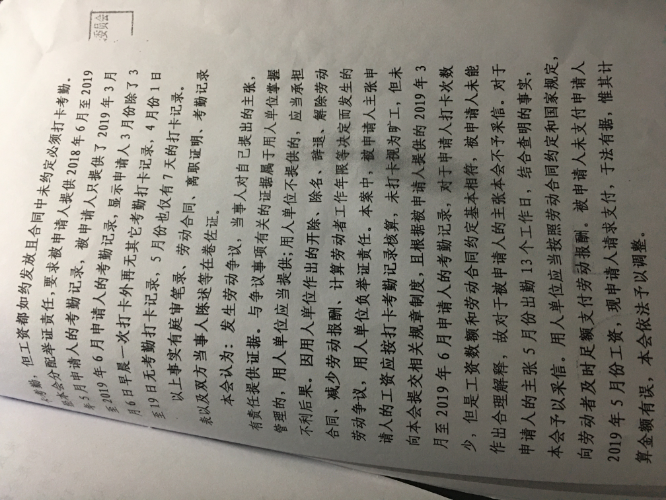 委员会
考勤，但工资都如约发放且合同中未约定必须打卡考勤。
经本会分配举证责任，要求被申请人提供 2018 年 6 月至 2019
年 5 月申请人的考勤记录，被申请人只提供了 2019 年 3 月
至 2019 年 6 月申请人的考勤记录，显示申请人 3 月份除了 3
月 6 日早晨一次打卡外再无其它考勤打卡记录，4 月份 1 日
至 19 日无考勤打卡记录，5 月份也仅有 7 天的打卡记录。
以上事实有庭审笔录、劳动合同、离职证明、考勤记录
表以及双方当事人陈述等在卷佐证。
本会认为：发生劳动争议，当事人对自己提出的主张，
有责任提供证据。与争议事项有关的证据属于用人单位掌握
管理的，用人单位应当提供；用人单位不提供的，应当承担
不利后果。因用人单位作出的开除、除名、辞退、解除劳动
合同、减少劳动报酬、计算劳动者工作年限等决定而发生的
劳动争议，用人单位负举证责任。本案中，被申请人主张申
请人的工资应按打卡考勤记录核算，未打卡视为旷工，但未
向本会提交相关规章制度，且根据被申请人提供的 2019 年 3
月至 2019 年 6 月申请人的考勤记录，对于申请人打卡次数
少，但是工资数额和劳动合同约定基本相符，被申请人未能
作出合理解释，故对于被申请人的主张本会不予采信。对于
申请人的主张 5 月份出勤 13 个工作日，结合查明的事实，
本会予以采信。用人单位应当按照劳动合同约定和国家规定，
向劳动者及时足额支付劳动报酬。被申请人未支付申请人
2019 年 5 月份工资，现申请人请求支付，于法有据，惟其计
算金额有误，本会依法予以调整。